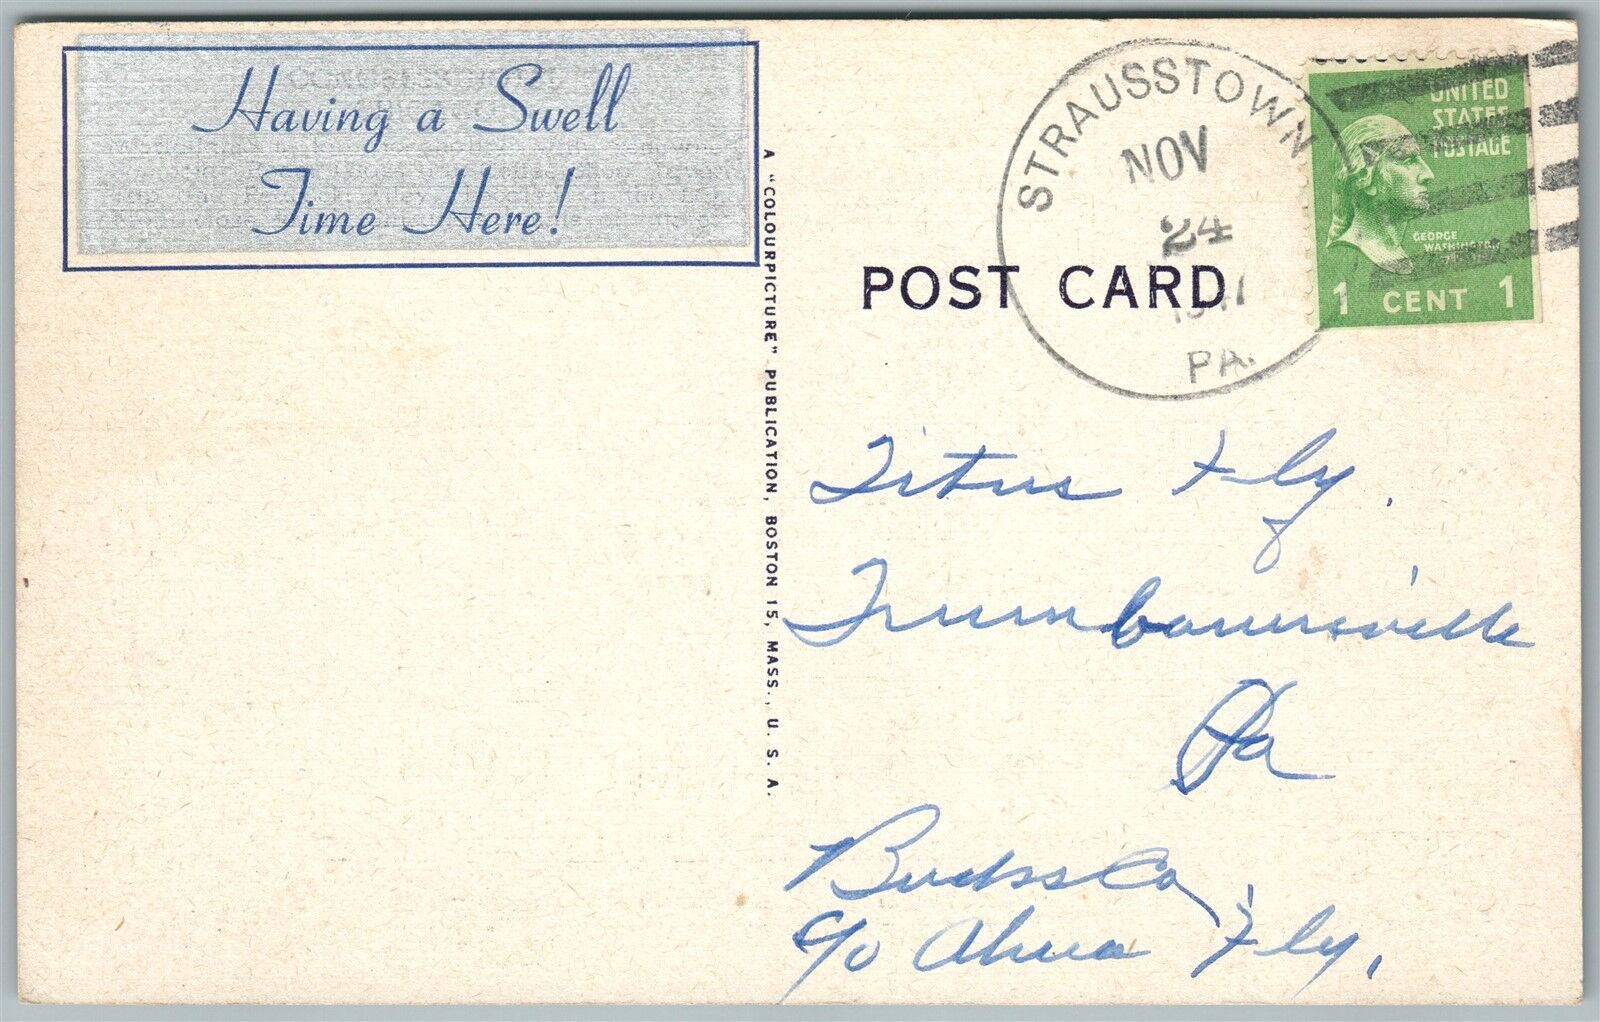 Having a Swell
Time Here!
A "COLOURPICTURE" PUBLICATION, BOSTON 15, MASS., U. S. A.
STRAUSSTOWN
NOV
24
PA.
POST CARD
UNITED
STATES
POSTAGE
GEORGE
WASHINGTON
1 CENT 1
Titus Fly.
Trumbauersville
Pa
Bucks Co,
c/o Fly,